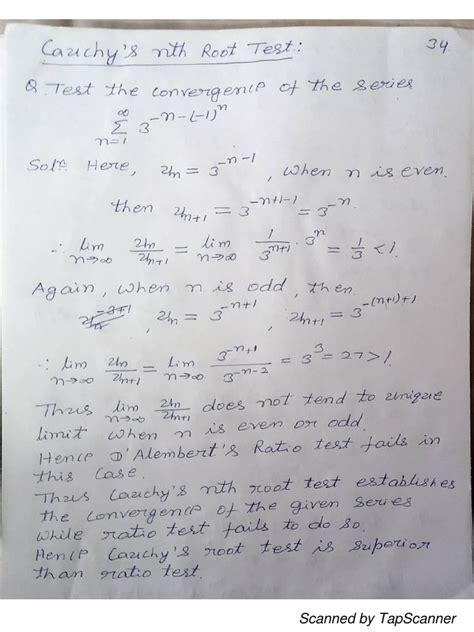 Cauchy's nth Root Test:
34
Q. Test the convergence of the series
∞ Σ n=1 3^{-n-(-1)^n}
Solⁿ. Here, u_n = 3^{-n-1}, when n is even.
then u_{n+1} = 3^{-n+1-1} = 3^{-n}
∴ lim n→∞ u_n/u_{n+1} = lim n→∞ 1/3^{n+1} · 3^n = 1/3 < 1.
Again, when n is odd, then
u_n = 3^{-n+1}, u_{n+1} = 3^{-(n+1)+1}
∴ lim n→∞ u_n/u_{n+1} = lim n→∞ 3^{-n+1}/3^{-n-2} = 3^3 = 27 > 1.
Thus lim n→∞ u_n/u_{n+1} does not tend to unique
limit when n is even or odd.
Hence D'Alembert's Ratio test fails in
this case.
Thus Cauchy's nth root test establishes
the convergence of the given series
while ratio test fails to do so.
Hence Cauchy's root test is superior
than ratio test.
Scanned by TapScanner